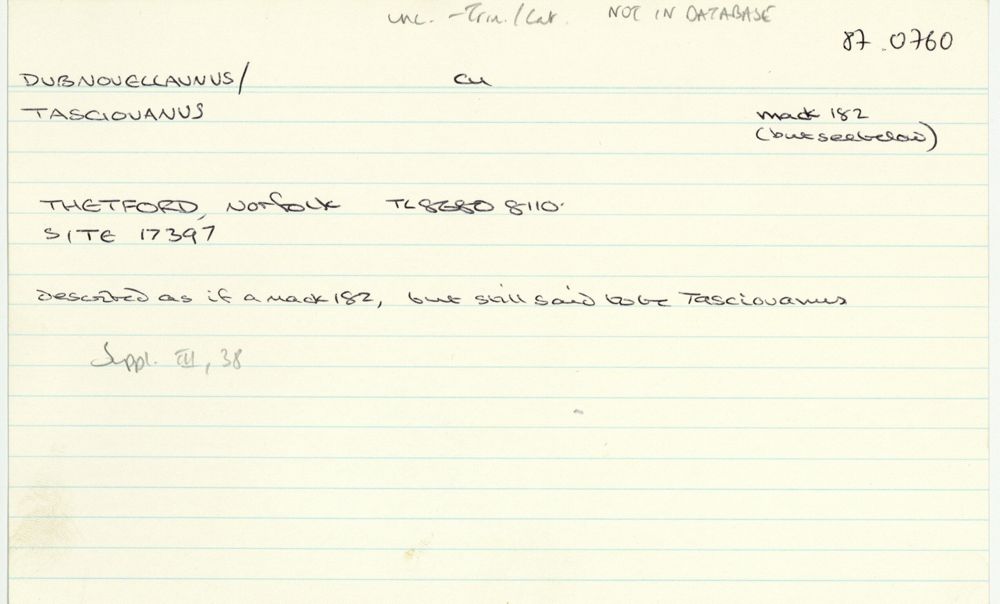 unc. - Trin./Cat. NOT IN DATABASE
87.0760
DUBNOVELLAUNUS/ CU
TASCIOVANUS mack 182
(but see below)
THETFORD, Norfolk TL 8680 8110.
SITE 17397
Described as if a mack 182, but still said to be Tasciovanus
Suppl. III, 38